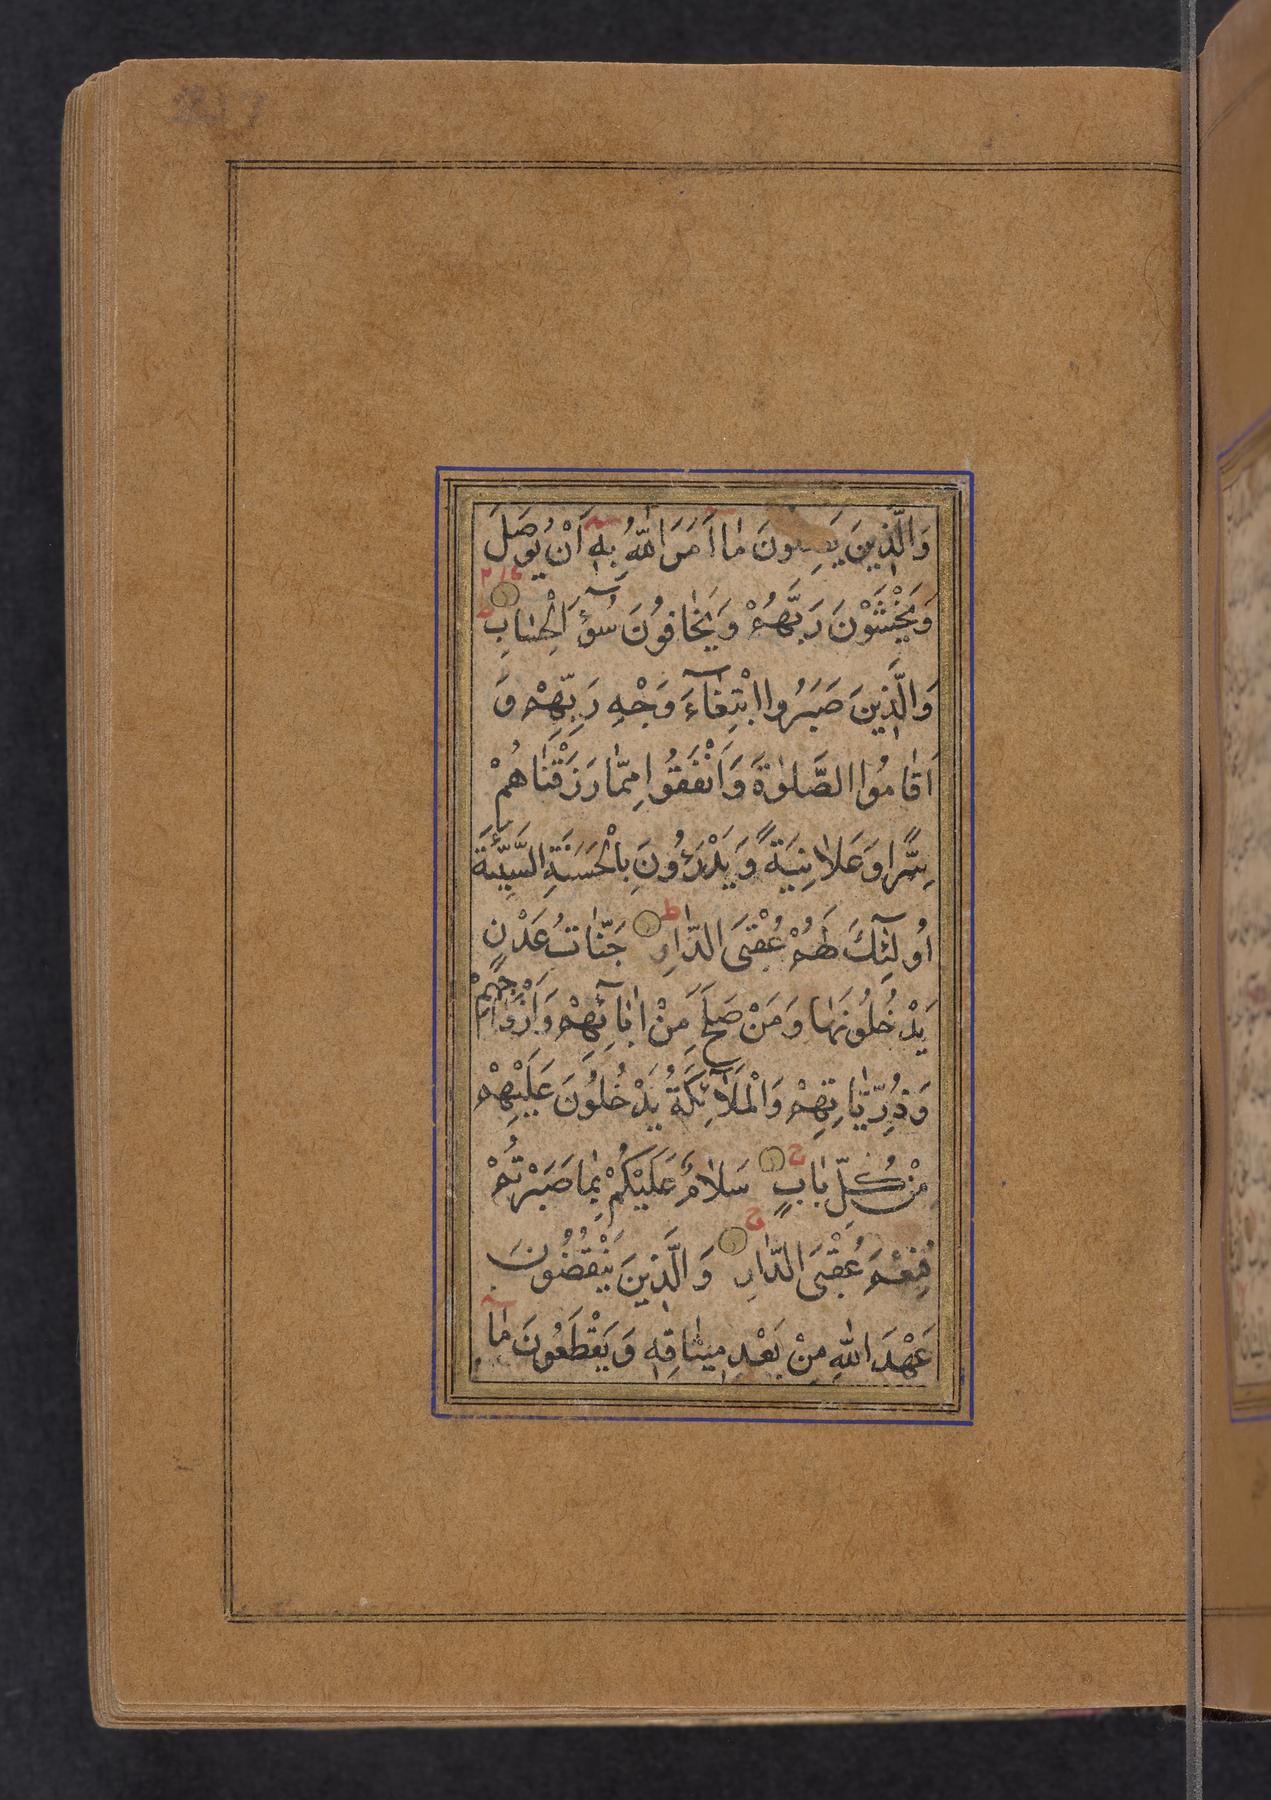 وَالَّذِينَ يَصِلُونَ مٰا اَمَرَ اللّٰهُ بِهِ اَنْ يُوصَلَ
وَيَخْشَوْنَ رَبَّهُمْ وَيَخٰافُونَ سُوٓءَ الْحِسٰابِ
وَالَّذِينَ صَبَرُوا ابْتِغٰٓاءَ وَجْهِ رَبِّهِمْ وَ
اَقٰامُوا الصَّلٰوةَ وَاَنْفَقُوا مِمّٰا رَزَقْنٰاهُمْ
سِرًّا وَعَلاٰنِيَةً وَيَدْرَؤُنَ بِالْحَسَنَةِ السَّيِّئَةَ
اُولٰٓئِكَ لَهُمْ عُقْبَى الدّٰارِ جَنّٰاتُ عَدْنٍ
يَدْخُلُونَهٰا وَمَنْ صَلَحَ مِنْ اٰبٰٓائِهِمْ وَاَزْوٰاجِهِمْ
وَذُرِّيّٰاتِهِمْ وَالْمَلآٰئِكَةُ يَدْخُلُونَ عَلَيْهِمْ
مِنْ كُلِّ بٰابٍ سَلاٰمٌ عَلَيْكُمْ بِمٰا صَبَرْتُمْ
فَنِعْمَ عُقْبَى الدّٰارِ وَالَّذِينَ يَنْقُضُونَ
عَهْدَ اللّٰهِ مِنْ بَعْدِ مِيثٰاقِهِ وَيَقْطَعُونَ مٰٓا